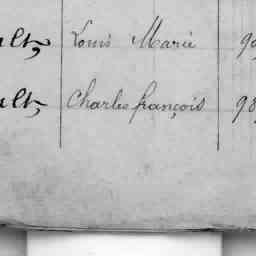 ult, Louis Marie 90
ult, Charles françois 98